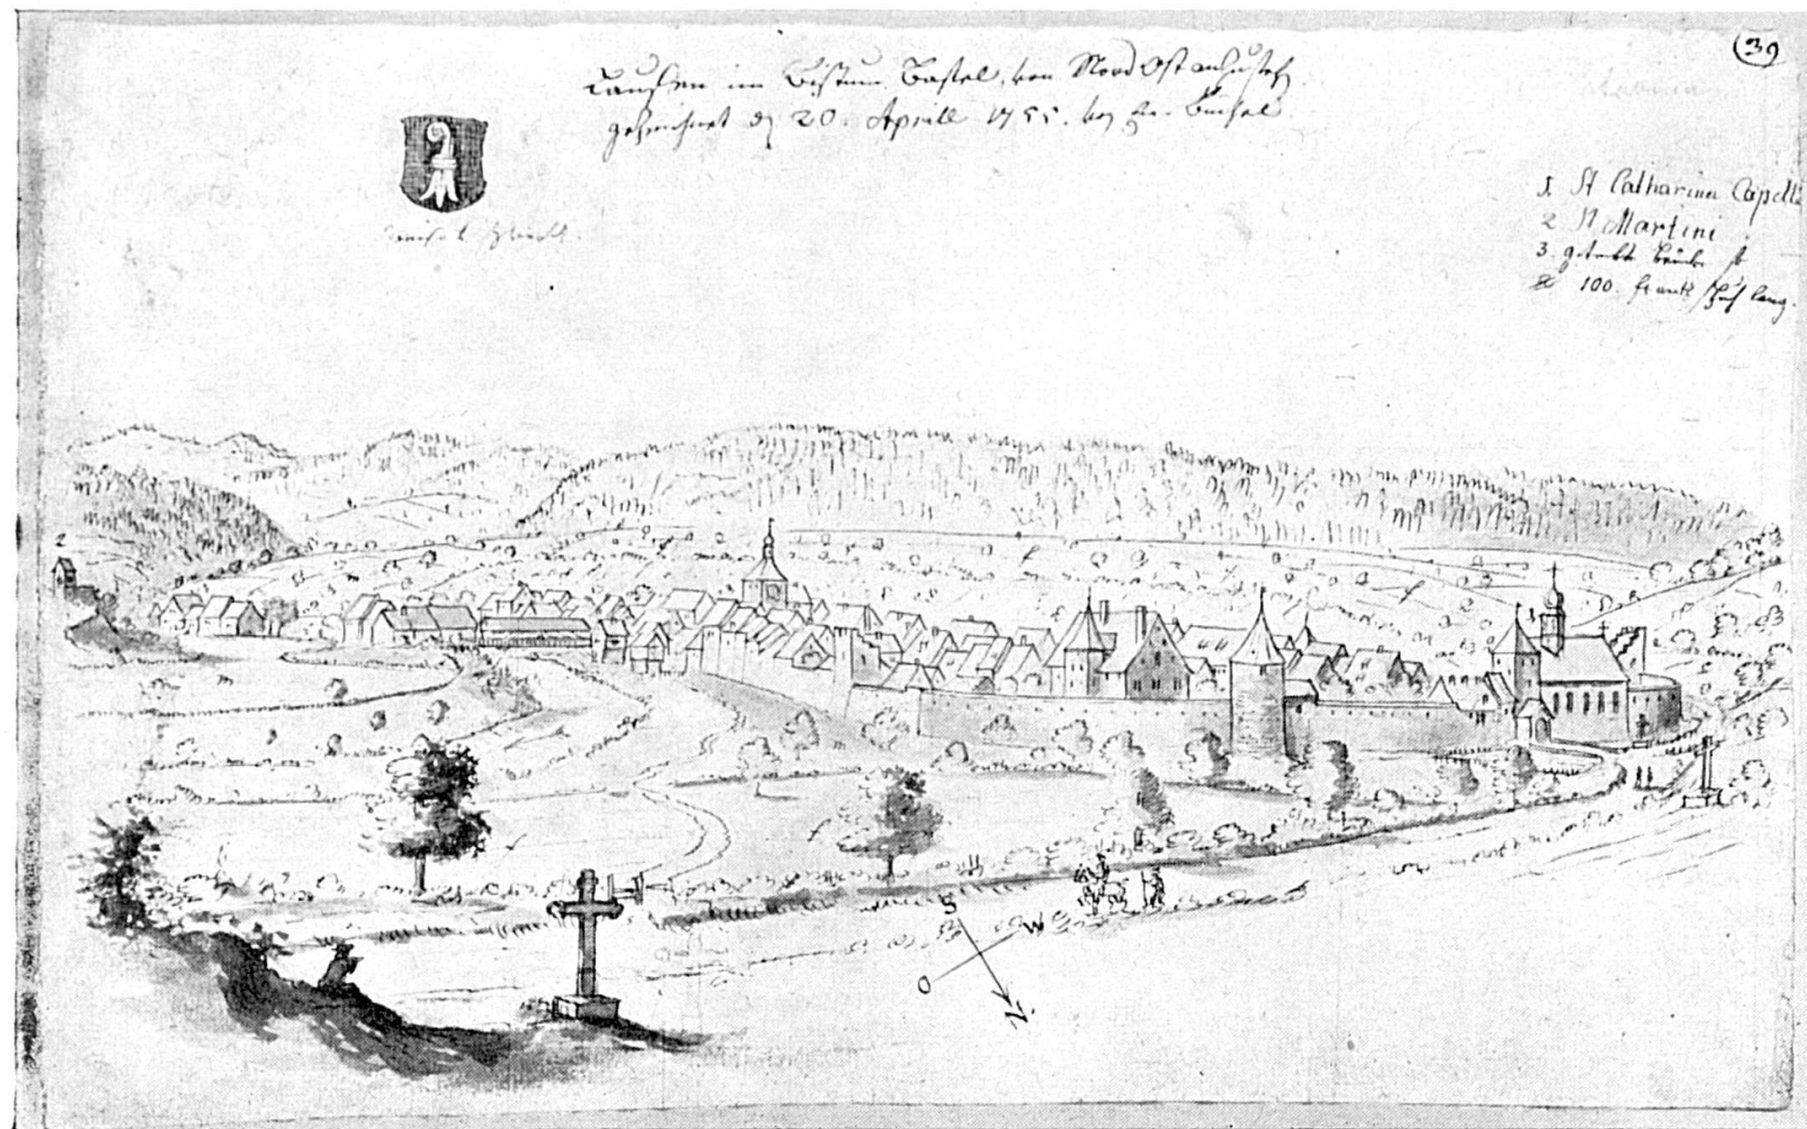 39
Lauffen im Bistum Bassel, von Nord Ost anzusehen.
gezeichnet d 20. Aprill 1755. von Büchel.
1. St Catharina Capelle
2 St Martini
3. gedeckte brücke ist
100. franz Schuh lang.
2
1
S
W
O
N.